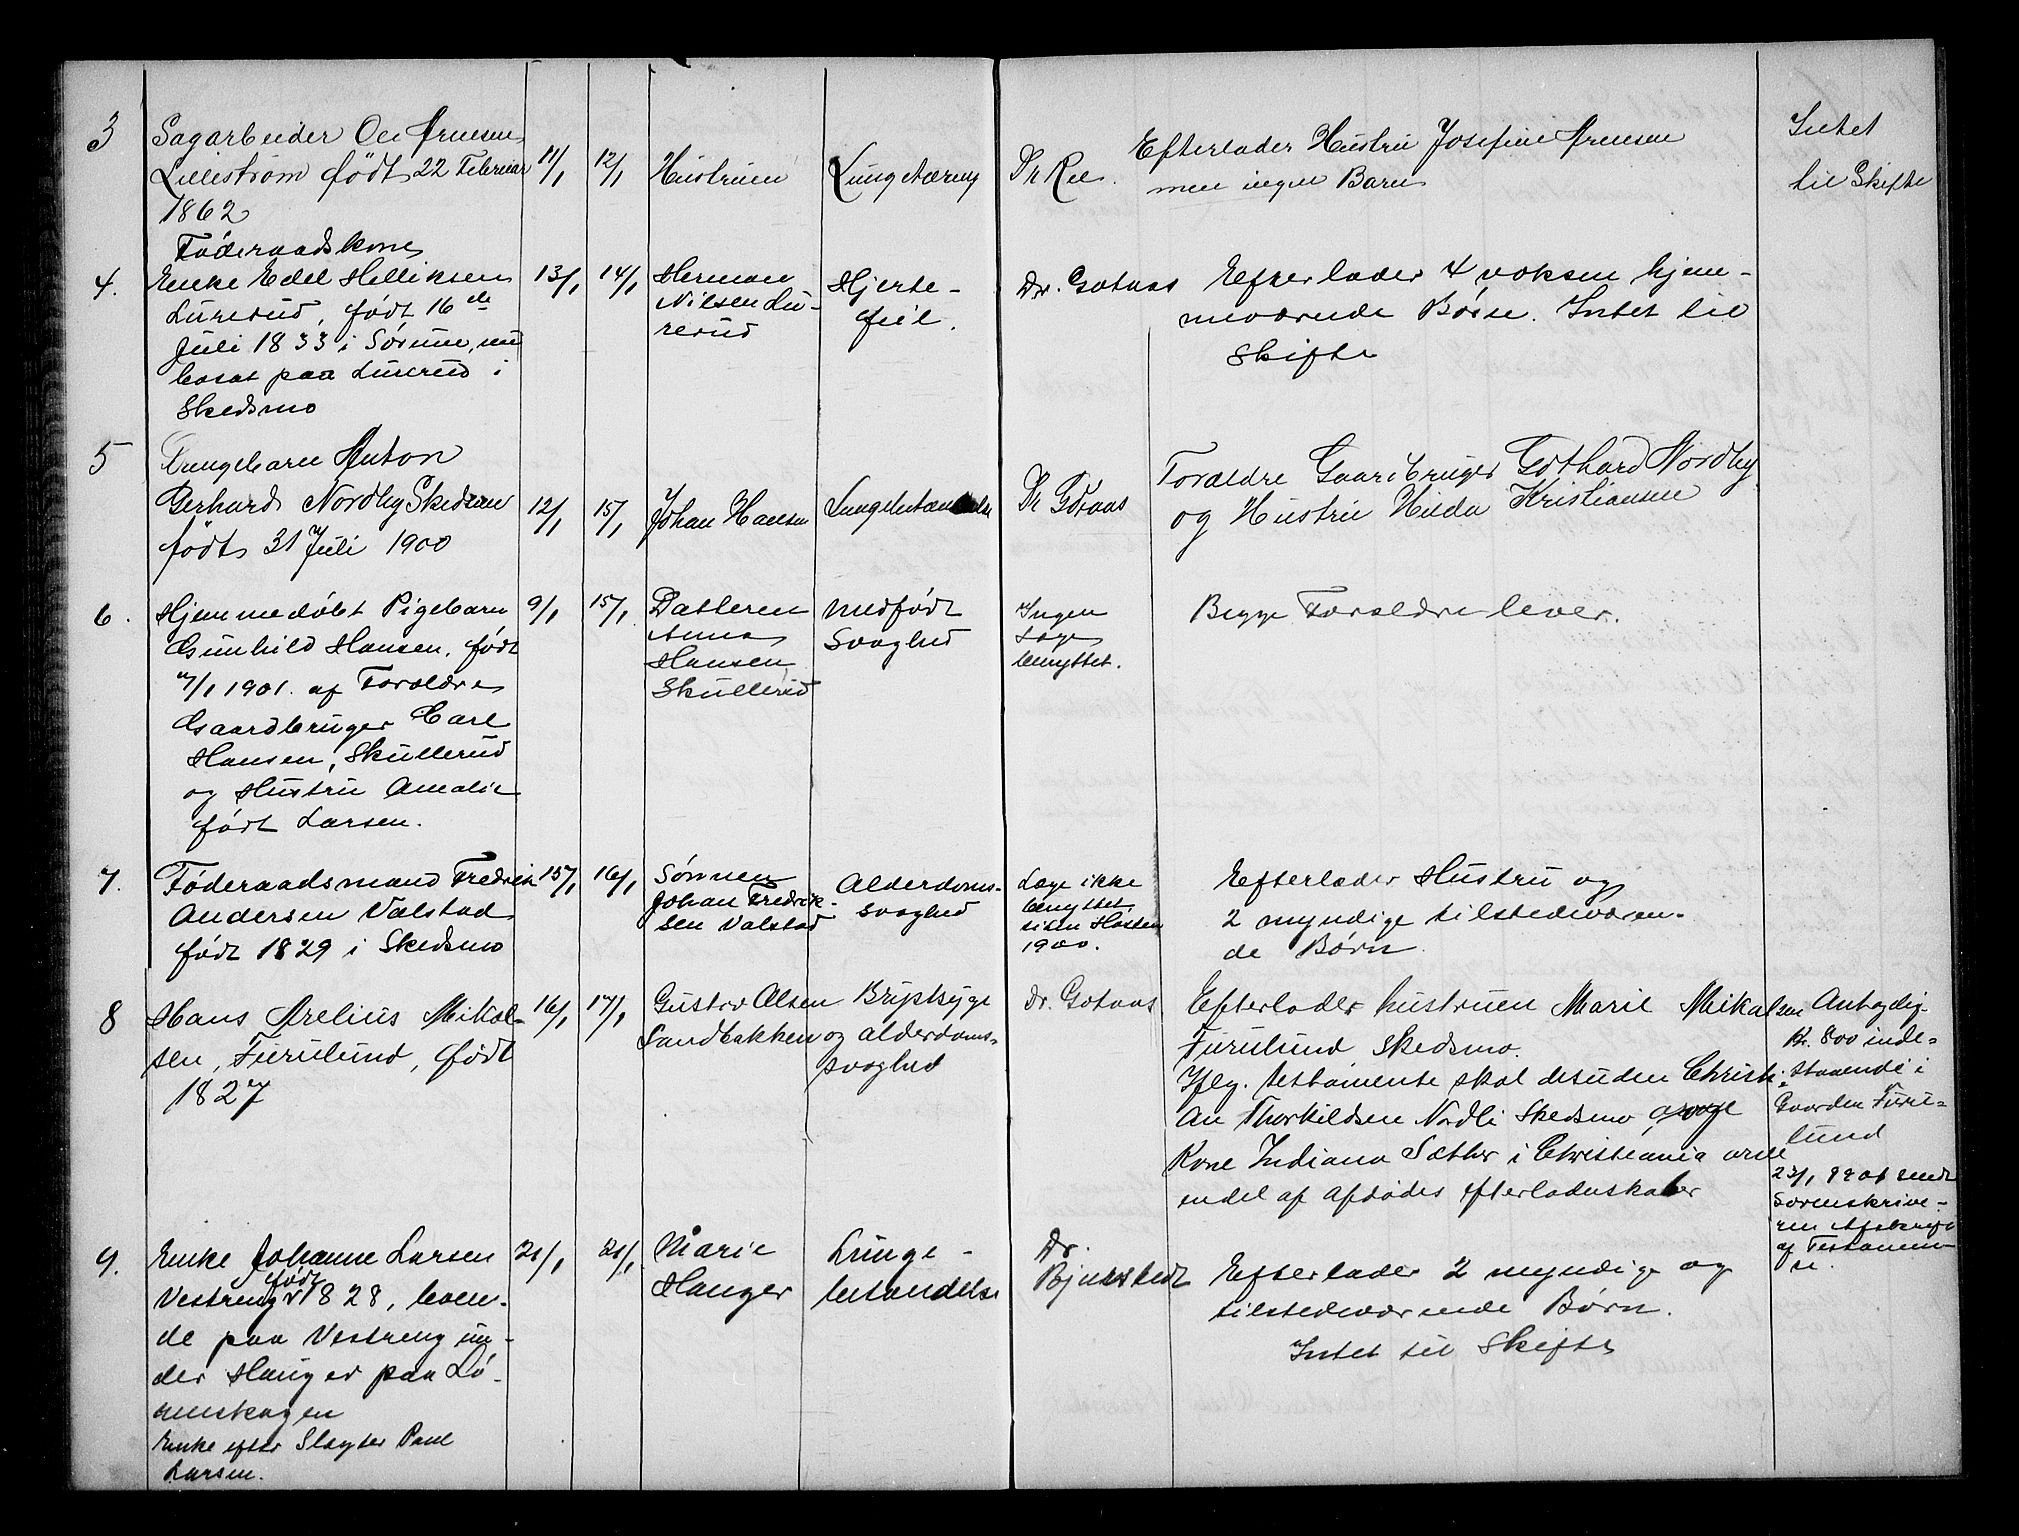 3
Sagarbeider Ole Arnesen
Lillestrøm født 22 Februar
1862
11/1
12/1
Hustruen
Lungetæring
Dr Ree.
Efterlader Hustru Josefine Arnesen
men ingen Børn
Intet
til Skifte
4.
Føderaadskone
Enke Edel Helliksen
Lurerud, født 16de
Juli 1833 i Sørum, nu
bosat paa Lurerud i
Skedsmo
13/1
14/1
Herman
Nilsen Lu-
rerud
Hjerte-
feil.
Dr. Gotaas
Efterlader 4 voksne hjem-
meværende Børn. Intet til
Skifte
5
Drengebarn Anton
Gerhard Nordby Skedsmo
født 31 Juli 1900
12/1
15/1
Johan Hansen
Lungebetændelse
Dr Gotaas
Forældre Gaardbruger Gothard Nordby
og Hustru Hilda Kristiansen
6.
Hjemmedøbt Pigebarn
Gunhild Hansen, født
1/1 1901. af Forældre
Gaardbruger Carl
Hansen, Skullerud
og Hustru Amalie
født Larsen.
9/1
15/1
Datteren
Anna
Hansen
Skullerud
Medfødt
Svaghed
Ingen
Læge
benyttet.
Begge Forældre lever.
7.
Føderaadsmand Fredrik
Andersen Valstad
født 1829 i Skedsmo
15/1
16/1
Sønnen
Johan Fredrik-
sen Valstad
Alderdoms-
svaghed
Læge ikke
benyttet
siden Høsten
1900.
Efterlader Hustru og
2 myndige tilstedeværen-
de Børn.
8
Hans Arelius Mikal-
sen, Furulund, født
1827
16/1
17/1
Gustav Olsen
Sandbakken
Brystsyge
og alderdoms-
svaghed
Dr. Gotaas
Efterlader hustruen Marie Mikalsen
Furulund Skedsmo.
Iflg. testamente skal desuden Christi-
an Thorkildsen Nordli Skedsmo og
Kone Indiana Sæther i Christiania arve
endel af afdødes efterladenskaber
Antagelig
Kr. 800 inde-
staaende i
Gaarden Furu-
lund
23/1 1901 sendt
Sorenskrive-
ren Afskrift
af Testamen-
te.
9.
Enke Johanne Larsen
født
Vestreng 1828, boen-
de paa Vestreng un-
der Hauger paa Lø-
renskogen
Enke efter Slagter Paul
Larsen.
21/1
21/1
Marie
Hauger
Lunge-
betændelse
Dr.
Bjerstedt
Efterlader 2 myndige og
tilstedeværende Børn.
Intet til Skifte